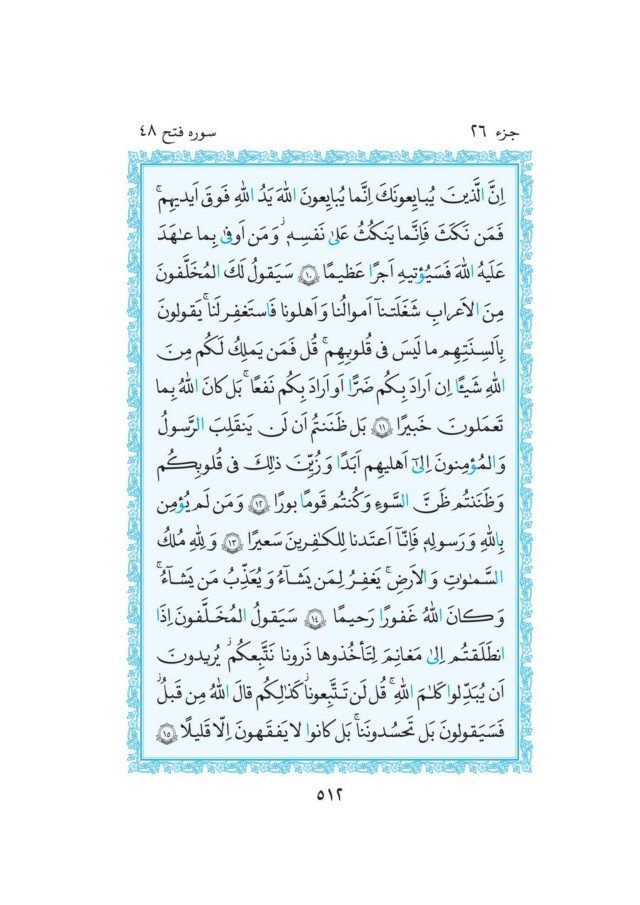 جزء ٢٦
سوره فتح ٤٨
اِنَّ الَّذينَ يُبايِعونَكَ اِنَّما يُبايِعونَ اللهَ يَدُ اللهِ فَوقَ اَيديهِمۚ
فَمَن نَكَثَ فَاِنَّما يَنكُثُ عَلىٰ نَفسِهٖۖ وَمَن اَوفىٰ بِما عٰهَدَ
عَلَيهُ اللهَ فَسَيُؤتيهِ اَجرًا عَظيمًا ﴿١٠﴾ سَيَقولُ لَكَ المُخَلَّفونَ
مِنَ الاَعرابِ شَغَلَتنآ اَموالُنا وَاَهلونا فَاستَغفِرلَناۚ يَقولونَ
بِاَلسِنَتِهِم ما لَيسَ فى قُلوبِهِمۚ قُل فَمَن يَملِكُ لَكُم مِنَ
اللهِ شَيـًٔا اِن اَرادَ بِكُم ضَرًّا اَو اَرادَ بِكُم نَفعًاۚ بَل كانَ اللهُ بِما
تَعمَلونَ خَبيرًا ﴿١١﴾ بَل ظَنَنتُم اَن لَن يَنقَلِبَ الرَّسولُ
وَالمُؤمِنونَ اِلىٰٓ اَهليهِم اَبَدًا وَزُيِّنَ ذٰلِكَ فى قُلوبِكُم
وَظَنَنتُم ظَنَّ السَّوءِ وَكُنتُم قَومًا بورًا ﴿١٢﴾ وَمَن لَم يُؤمِن
بِاللهِ وَرَسولِهٖ فَاِنّآ اَعتَدنا لِلكٰفِرينَ سَعيرًا ﴿١٣﴾ وَلِلّٰهِ مُلكُ
السَّمٰوٰتِ وَالاَرضِۚ يَغفِرُ لِمَن يَشآءُ وَيُعَذِّبُ مَن يَشآءُۚ
وَكانَ اللهُ غَفورًا رَحيمًا ﴿١٤﴾ سَيَقولُ المُخَلَّفونَ اِذَا
انطَلَقتُم اِلىٰ مَغانِمَ لِتَأخُذوها ذَرونا نَتَّبِعكُمۖ يُريدونَ
اَن يُبَدِّلوا كَلٰمَ اللهِۚ قُل لَن تَتَّبِعونا كَذٰلِكُم قالَ اللهُ مِن قَبلُۖ
فَسَيَقولونَ بَل تَحسُدونَناۚ بَل كانوا لا يَفقَهونَ اِلّا قَليلًا ﴿١٥﴾
٥١٢